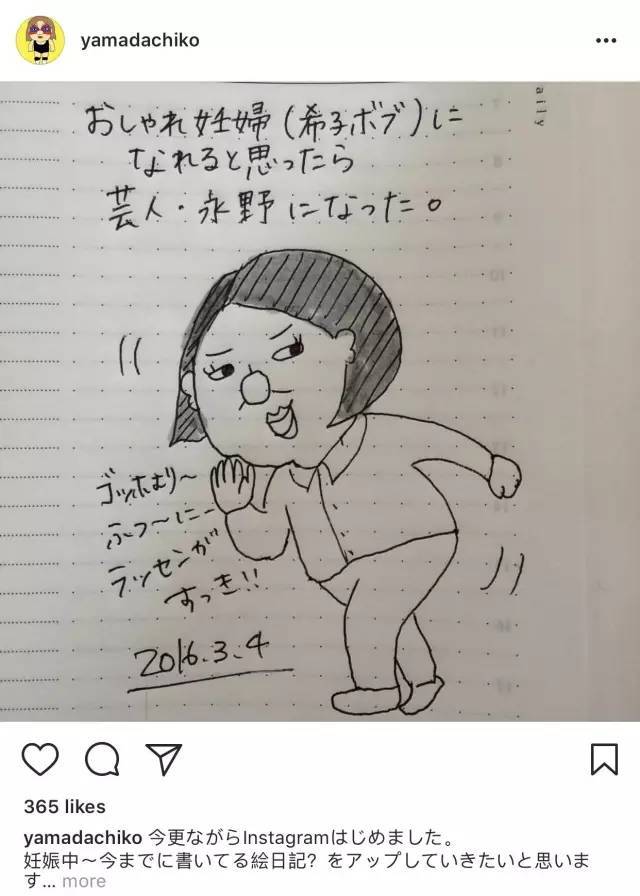 yamadachiko
aily
おしゃれ妊婦(希子ボブ)に
なれると思ったら
芸人・永野になった。
ゴッホより〜
ふつ〜に〜
ラッセンが
すっき!!
2016.3.4
365 likes
yamadachiko 今更ながらInstagramはじめました。
妊娠中〜今までに書いてる絵日記? をアップしていきたいと思いま
す... more